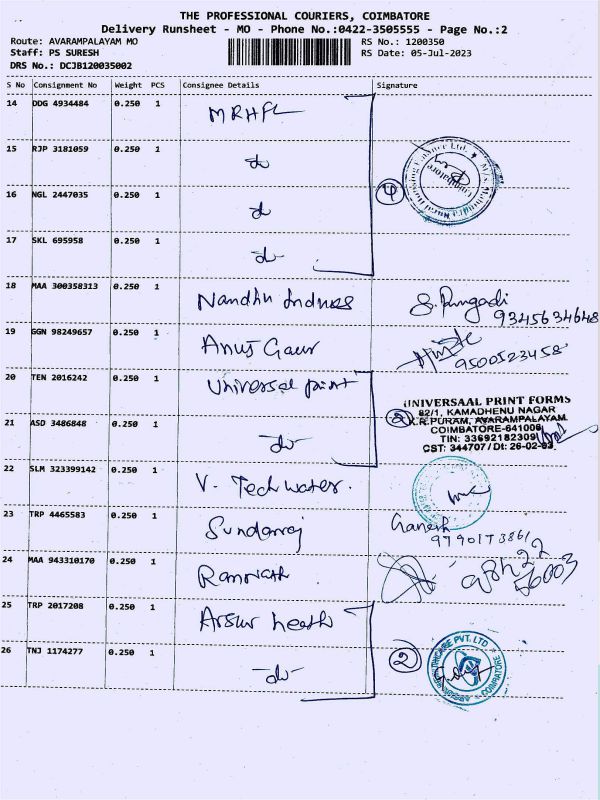 THE PROFESSIONAL COURIERS, COIMBATORE
Delivery Runsheet - MO - Phone No.:0422-3505555 - Page No.:2
Route: AVARAMPALAYAM MO
RS No.: 1200350
Staff: PS SURESH
RS Date: 05-Jul-2023
DRS No.: DCJB120035002
S No Consignment No Weight PCS Consignee Details Signature
14 DDG 4934484 0.250 1 MRHFL
15 RJP 3181059 0.250 1 do
16 NGL 2447035 0.250 1 do 4
17 SKL 695958 0.250 1 do
18 MAA 300358313 0.250 1 Nandhu Indus
9345634648
19 GGN 98249657 0.250 1 Anuj Gaur
9500523458
20 TEN 2016242 0.250 1 Universal print
UNIVERSAAL PRINT FORMS
82/1, KAMADHENU NAGAR
21 ASD 3486848 0.250 1 do 2 K.R.PURAM, AVARAMPALAYAM
COIMBATORE-641006
TIN: 33692182309
CST: 344707 / Dt: 26-02-93
22 SLM 323399142 0.250 1 V. Tech water.
23 TRP 4465583 0.250 1 Sundarraj Ganesh
9790173861
24 MAA 943310170 0.250 1 Ramnath
25 TRP 2017208 0.250 1
26 TNJ 1174277 0.250 1 do 2
HEALTHCARE PVT. LTD
COIMBATORE